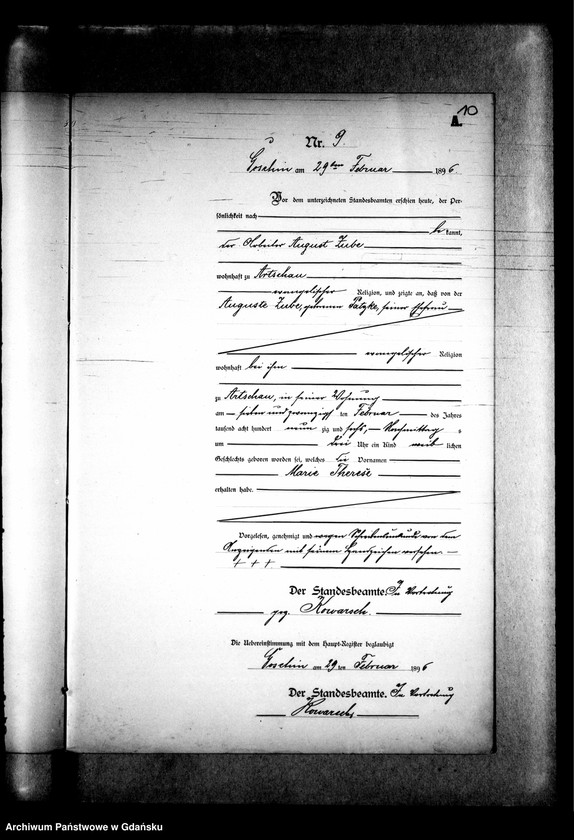 10
A.
Nr. 9.
Goschin am 29ten Februar 1896
Vor dem unterzeichneten Standesbeamten erschien heute, der Per-
sönlichkeit nach
be kannt,
der Arbeiter August Zube
wohnhaft zu Artschau
evangelischer Religion, und zeigte an, daß von der
Auguste Zube, geborenen Patzke, seiner Ehefrau
evangelischer Religion
wohnhaft bei ihm
zu Artschau, in seiner Wohnung
am sieben und zwanzigsten Februar des Jahres
tausend acht hundert neun zig und sechs, Nachmittag s
um drei Uhr ein Kind weib lichen
Geschlechts geboren worden sei, welches die Vornamen
Marie Therese
erhalten habe.
Vorgelesen, genehmigt und wegen Schreibensunkunde von dem
Anzeigenden mit seinem Handzeichen versehen.
+ + +
Der Standesbeamte. In Vertretung
gez. Kowarsch.
Die Uebereinstimmung mit dem Haupt-Register beglaubigt
Goschin am 29 ten Februar 1896
Der Standesbeamte. In Vertretung
Kowarsch
Archiwum Państwowe w Gdańsku